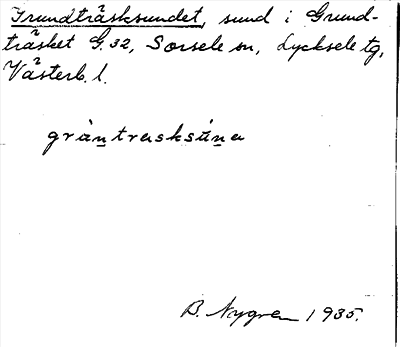 Grundträsksundet, sund i Grund-
träsket G. 32, Sorsele sn, Lycksele tg,
Västerb. l.
gràn̲trasksún̲a
B. Nygren 1935.